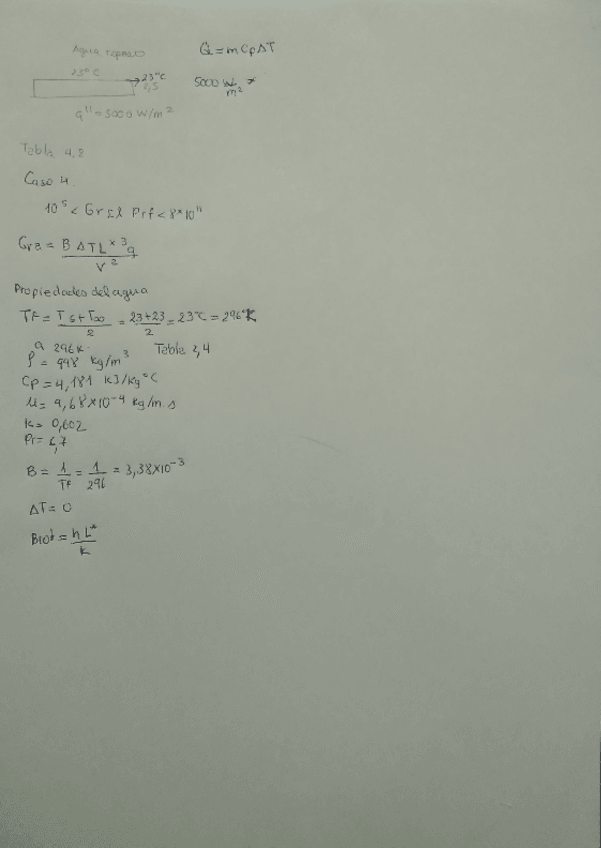 Agua reposo Q̇ = mCpΔT
23°C
23°C
2,5
5000 W/m²
q'' = 5000 W/m²
Tabla 4,2
Caso 4
10⁵ < Gr Prf < 8*10¹¹
= B ΔT L*³ g / V²
Propiedades del agua
TF = Ts + T∞ / 2 = 23+23 / 2 = 23°C = 296K
a 296K. Tabla 2,4
ρ = 998 kg/m³
Cp = 4,181 kJ/kg°C
μ = 9,68×10⁻⁴ kg/m.s
K = 0,602
Pr = 6,7
B = 1/TF = 1/296 = 3,38×10⁻³
ΔT = 0
Biot = hL*/k